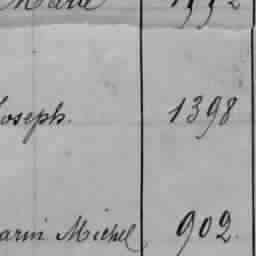 Joseph. 1398
arin Michel 902.